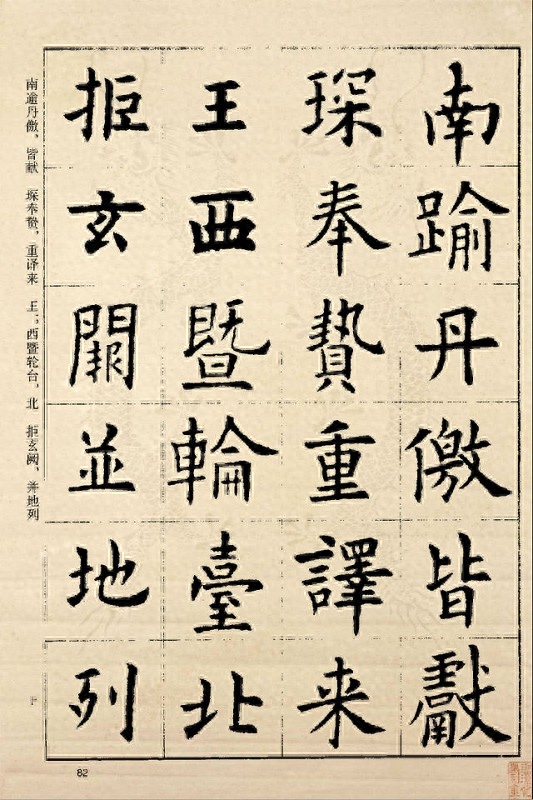 南踰丹儌皆獻
琛奉贄重譯來
王西暨輪臺北
拒玄闕並地列
南逾丹儌，皆献 琛奉贽，重译来 王；西暨轮台，北 拒玄阙，并地列
82